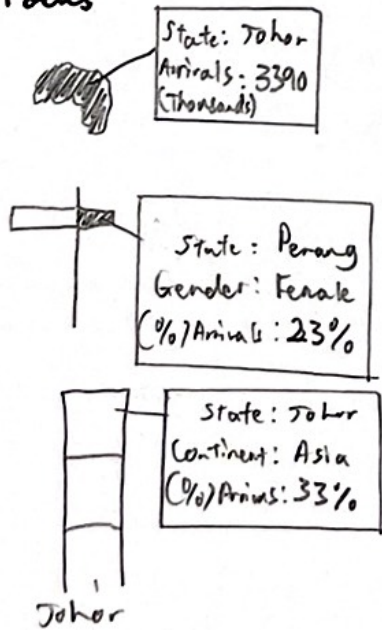 Focus
State: Johor
Arrivals: 3390
(Thousands)
State: Penang
Gender: Female
(%) Arrivals: 23%
State: Johor
Continent: Asia
(%) Arrivals: 33%
Johor